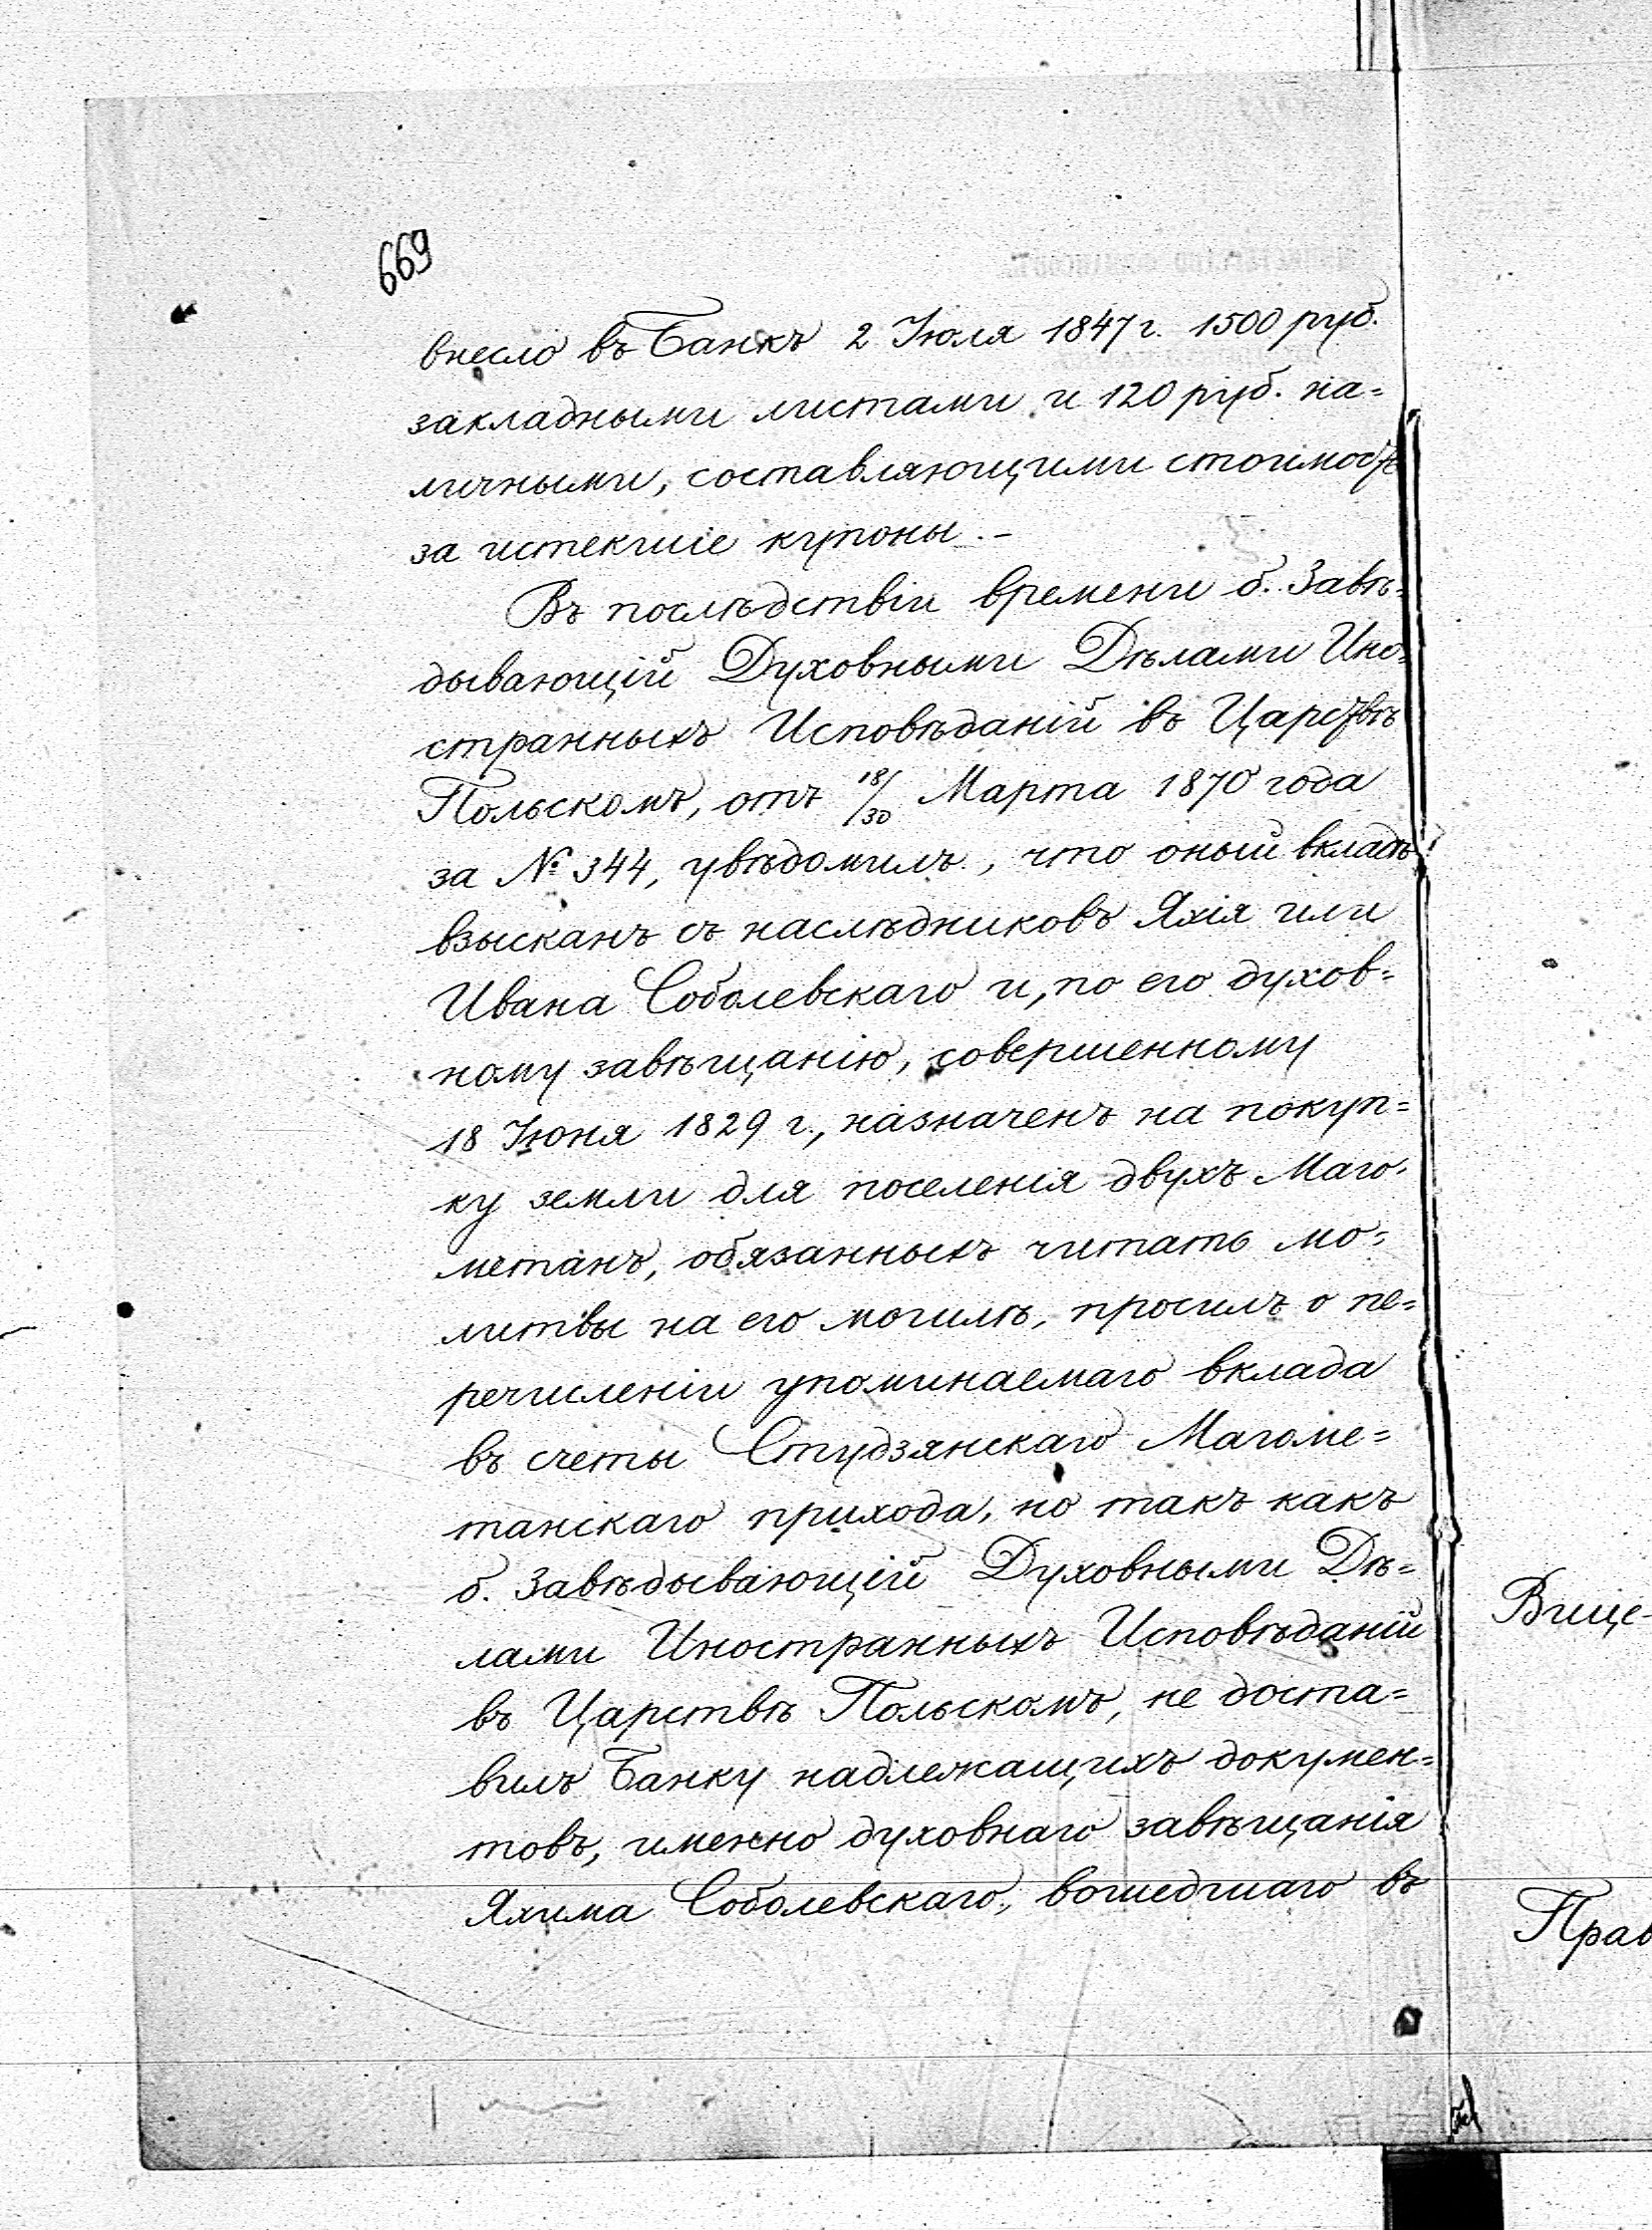 669
внесло въ Банкъ 2 Іюля 1847 г. 1500 руб.
закладными листами и 120 руб. на=
личными, составляющими стоимость
за истекшіе купоны. –
Въ послѣдствіи времени б. Завѣ=
дывающій Духовными Дѣлами Ино=
странныхъ Исповѣданій въ Царствѣ
Польскомъ, отъ 18/30 Марта 1870 года
за № 344, увѣдомилъ, что оный вкладъ
взысканъ съ наслѣдниковъ Яхія или
Ивана Соболевскаго и, по его духов=
ному завѣщанію, совершенному
18 Іюня 1829 г., назначенъ на покуп=
ку земли для поселенія двухъ Маго=
метанъ, обязанныхъ читать мо=
литвы на его могилѣ, просилъ о пе=
речисленіи упоминаемаго вклада
въ счеты Студзянскаго Магоме=
танскаго прихода, но такъ какъ
б. Завѣдывающій Духовными Дѣ=
лами Иностранныхъ Исповѣданій
въ Царствѣ Польскомъ, не доста=
вилъ Банку надлежащихъ докумен=
товъ, именно духовнаго завѣщанія
Яхима Соболевскаго, вошедшаго въ
Вице-
Прав